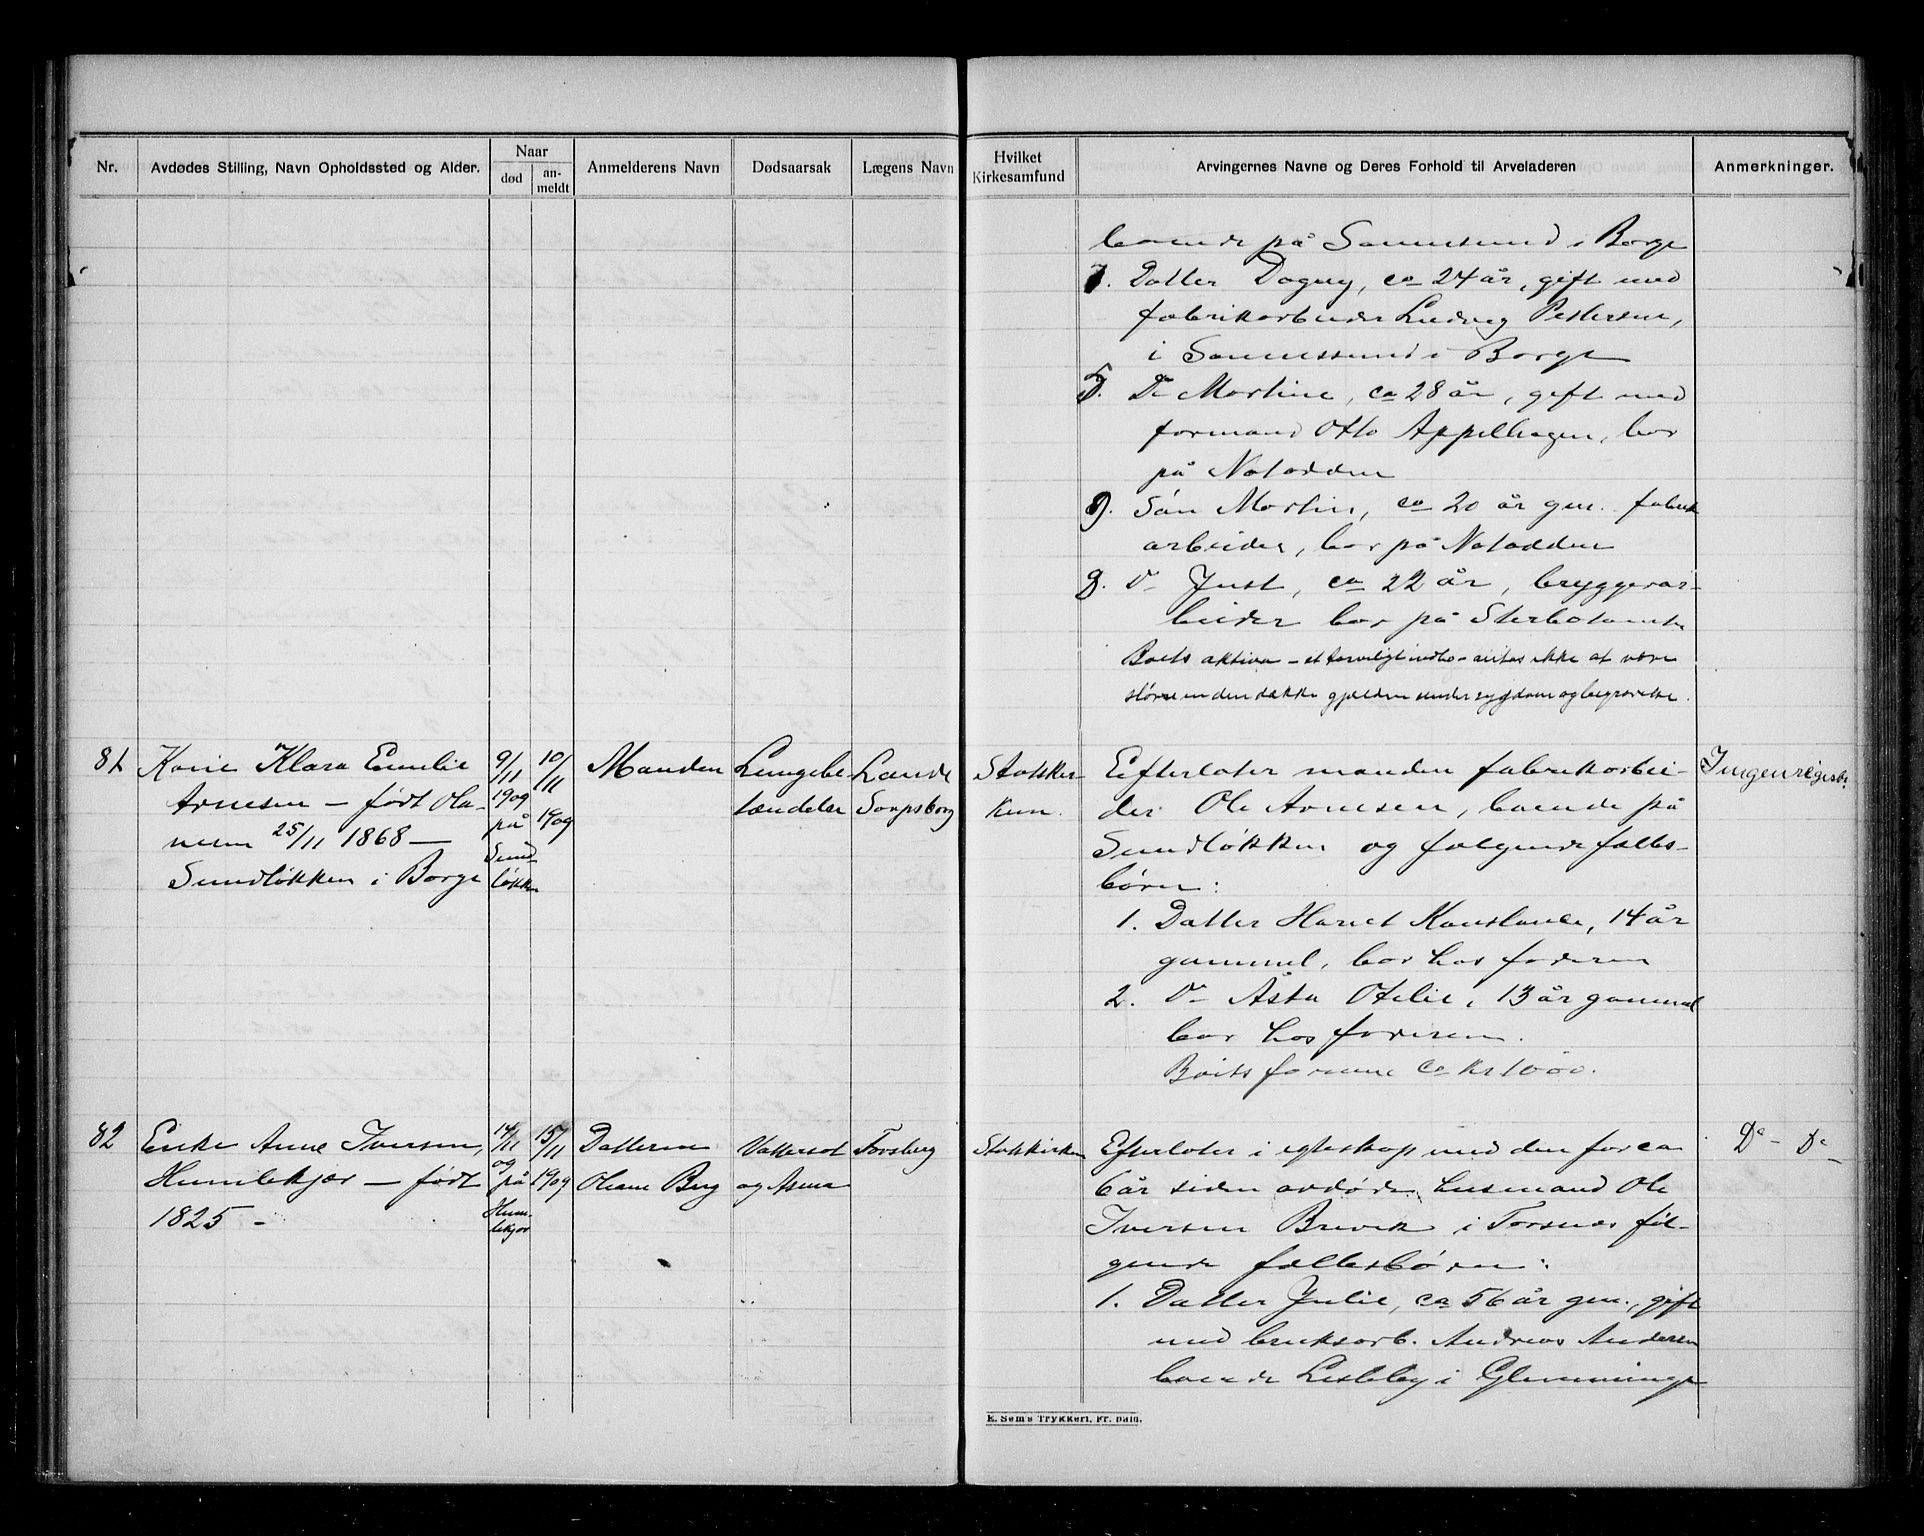 Nr.
Avdødes Stilling, Navn Opholdssted og Alder.
Naar
død
an-
meldt
Anmelderens Navn
Dødsaarsak
Lægens Navn
Hvilket
Kirkesamfund
Arvingernes Navne og Deres Forhold til Arveladeren
Anmerkninger.
boende på Sannesund i Borge
7. Datter Dagny, ca 24 år, gift med
fabrikarbeider Ludvig Pettersen,
i Sannessund i Borge
D: Martine, ca 28 år, gift med
formand Otto Appelhagen, bor
på Notodden
Søn Martin, ca 20 år gm. fabrik
arbeider, bor på Notodden
8. D- Just, ca 22 år, bryggerar-
beider bor på Sterbotomta
Boets aktiva - et tarveligt indbo - antas ikke at være
større en den dække gjælden under sygdom og begravelse.
81
Kone Klara Emilie
Arnesen - født Ola-
nesen 25/11 1868 -
Sundløkken i Borge
9/11
1909
på
Sund-
løkken
10/11
1909
Manden
Lungebe-
tændelse
Lande
Sarpsborg
Statskir-
ken.
Efterlater manden fabrikarbei-
der Ole Arnesen, boende på
Sundløkken og følgende fælles-
børn:
1. Datter Hariet Konstance, 14 år
gammel, bor hos faderen
2. D- Åsta Otelie, 13 år gammel
bor hos faderen.
Boets formue ca kr 1000.
Ingen
82
Enke Anne Iversen,
Humlekjær - født
1825 -
14/11
09
på
Hum-
lekjær
15/11
1909
Datteren
Oleane Berg
Vattersot
og Asma
Forsberg
Statskirken
Efterlater i egteskap med den for ca
6 år siden avdøde husmand Ole
Iversen Brevik i Torsnæs føl-
gende fællesbørn:
1. Datter Julie, ca 56 år gm., gift
med bruksarb. Andreas Andersen
boende Lisleby i Glemminge
D- D-
E. Sem's Trykkeri, Fr.hald.